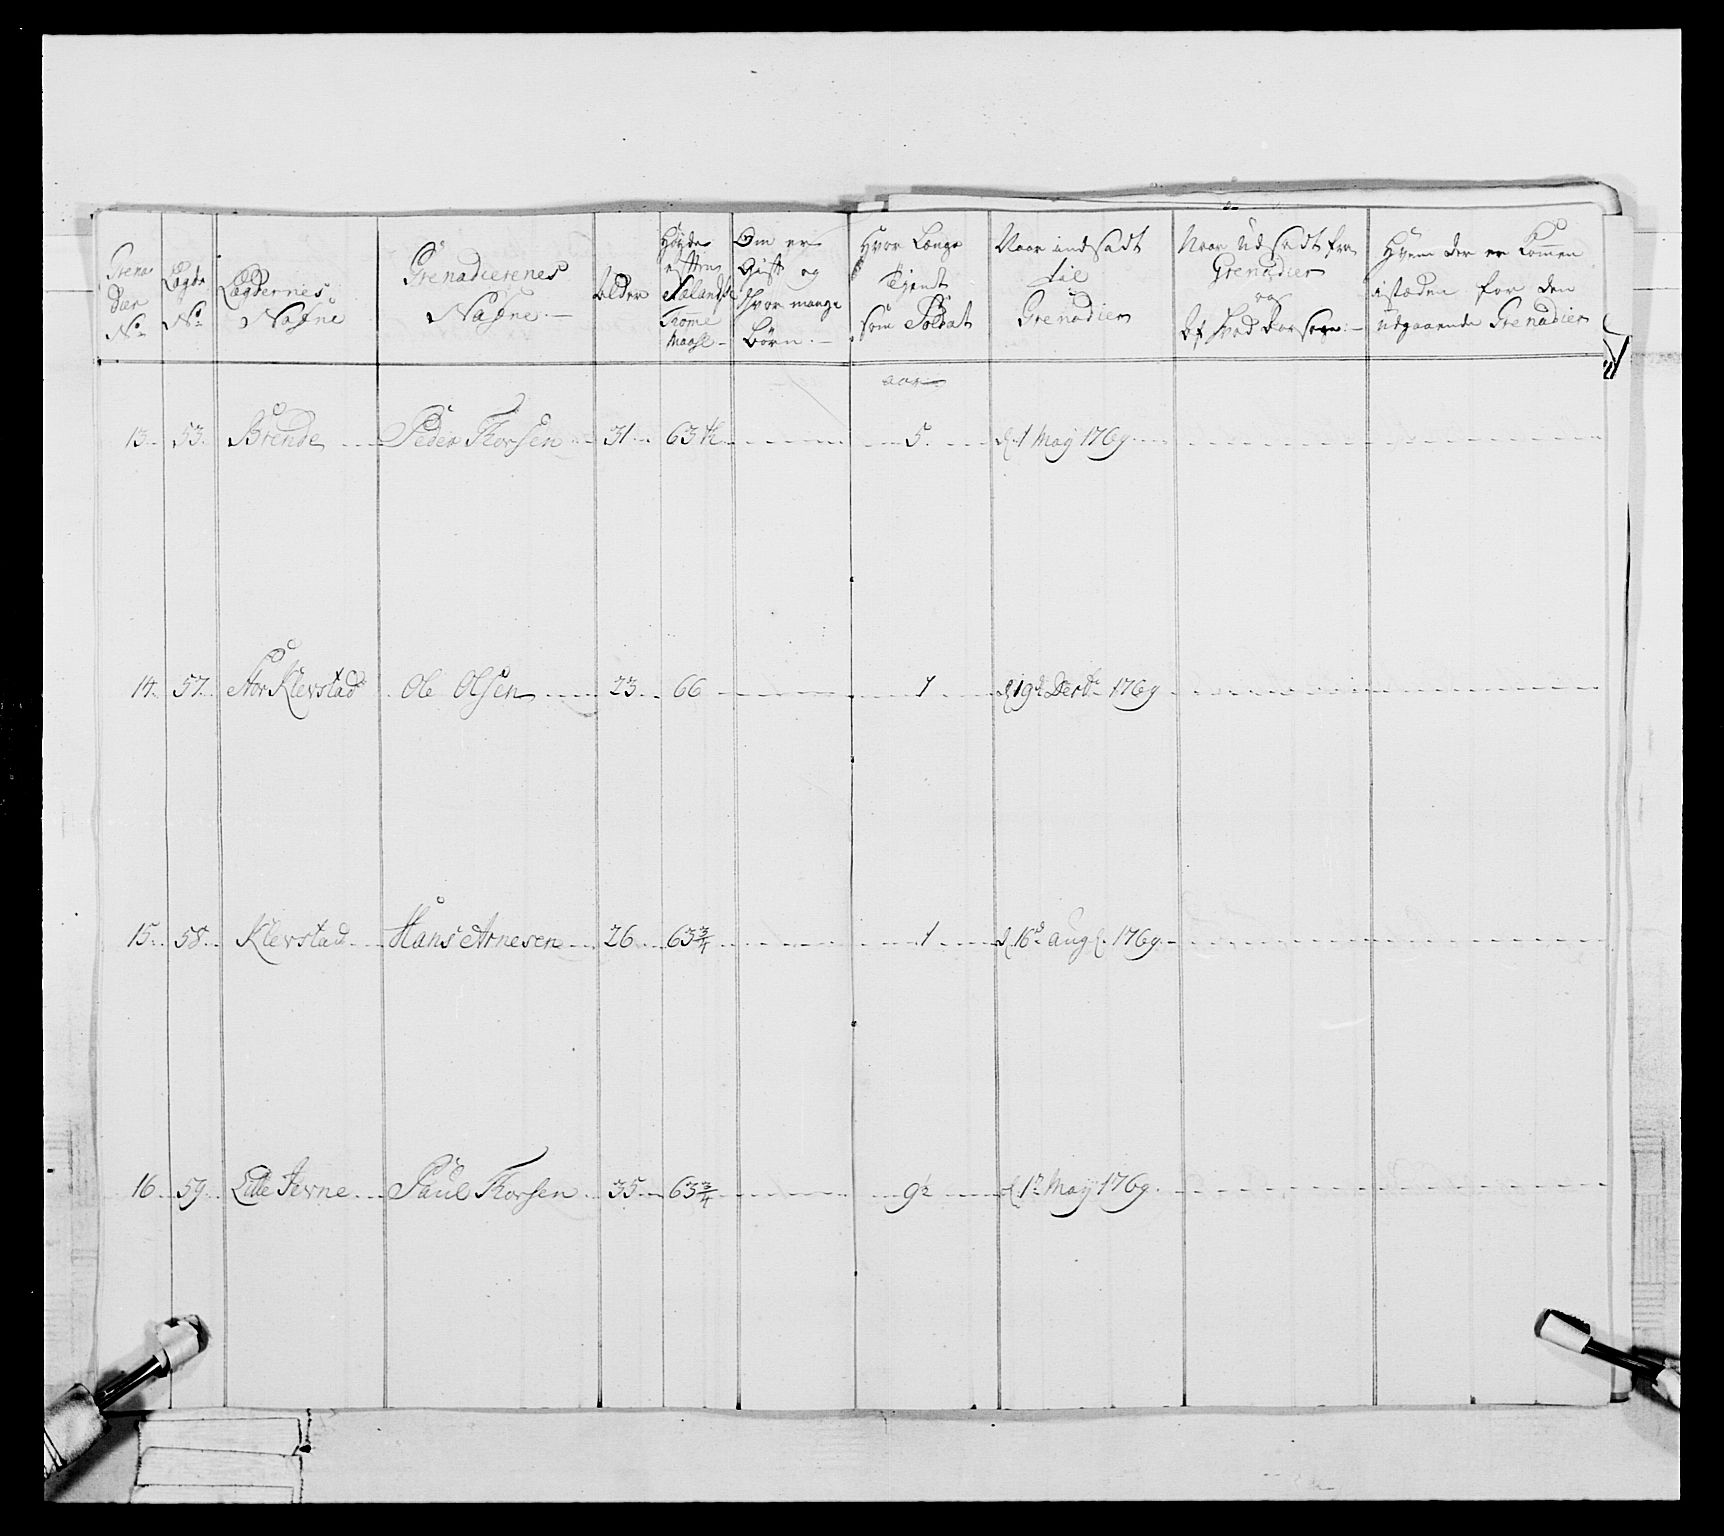 Grena
dier
No
Lægds
No
Lægdernes
Nafne
Grenadierenes
Nafne
alder
Høyde
efter
Siælandsk
Tomme
Maal
Om er
Gift og
hvor mange
Børn
Hvor Længe
Tjendt
som Soldat
Naar indsadt
til
Grenadier
Naar Udsadt fra
Grenadier
og
af hvad Aarsage
Hvem der er Kommen
istæden for den
Udgaaende Grenadier
aar
13 53 Brende Peder Thorsen 31 63 1/2 5 d 1 May 1769
14 57 Stor Klevstad Ole Olsen 23 66 1 d 19de Decbr 1769
15 58 Klevstad Hans Arnesen 26 63 3/4 1 d 16de aug 1769
16 59 Lille Jevne Paul Thorsen 35 63 3/4 9 1/2 d 1te May 1769